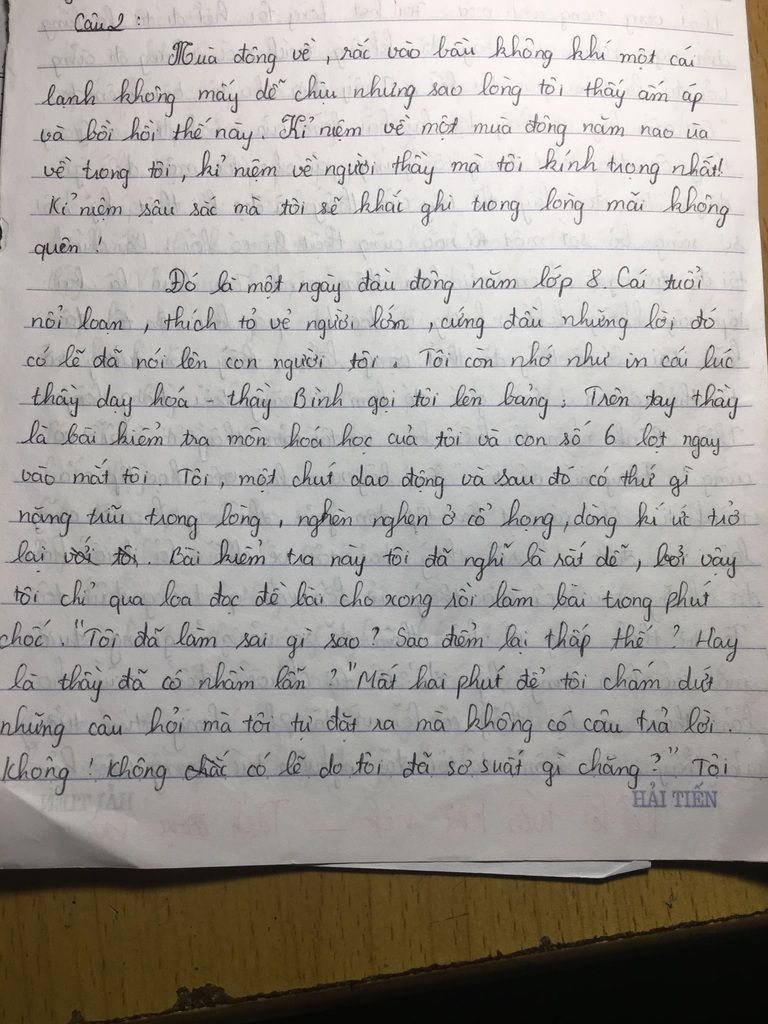 Câu 2 :
Mùa đông về, rắc vào bầu không khí một cái
lạnh không mấy dễ chịu nhưng sao lòng tôi thấy ấm áp
và bồi hồi thế này. Kỉ niệm về một mùa đông năm nao ùa
về trong tôi, kỉ niệm về người thầy mà tôi kính trọng nhất!
Kỉ niệm sâu sắc mà tôi sẽ khắc ghi trong lòng mãi không
quên !
Đó là một ngày đầu đông năm lớp 8. Cái tuổi
nổi loạn, thích tỏ vẻ người lớn, cứng đầu những lời đó
có lẽ đã nói lên con người tôi. Tôi còn nhớ như in cái lúc
thầy dạy hoá - thầy Bình gọi tôi lên bảng; Trên tay thầy
là bài kiểm tra môn hoá học của tôi và con số 6 lọt ngay
vào mắt tôi. Tôi, một chút dao động và sau đó có thứ gì
nặng trĩu trong lòng, nghèn nghẹn ở cổ họng, dòng kí ức trở
lại với tôi. Bài kiểm tra này tôi đã nghĩ là rất dễ, bởi vậy
tôi chỉ qua loa đọc đề bài cho xong rồi làm bài trong phút
chốc. "Tôi đã làm sai gì sao? Sao điểm lại thấp thế? Hay
là thầy đã có nhầm lẫn?" Mất hai phút để tôi chấm dứt
những câu hỏi mà tôi tự đặt ra mà không có câu trả lời.
Không! Không chắc có lẽ do tôi đã sơ suất gì chăng?" Tôi
HẢI TIẾN